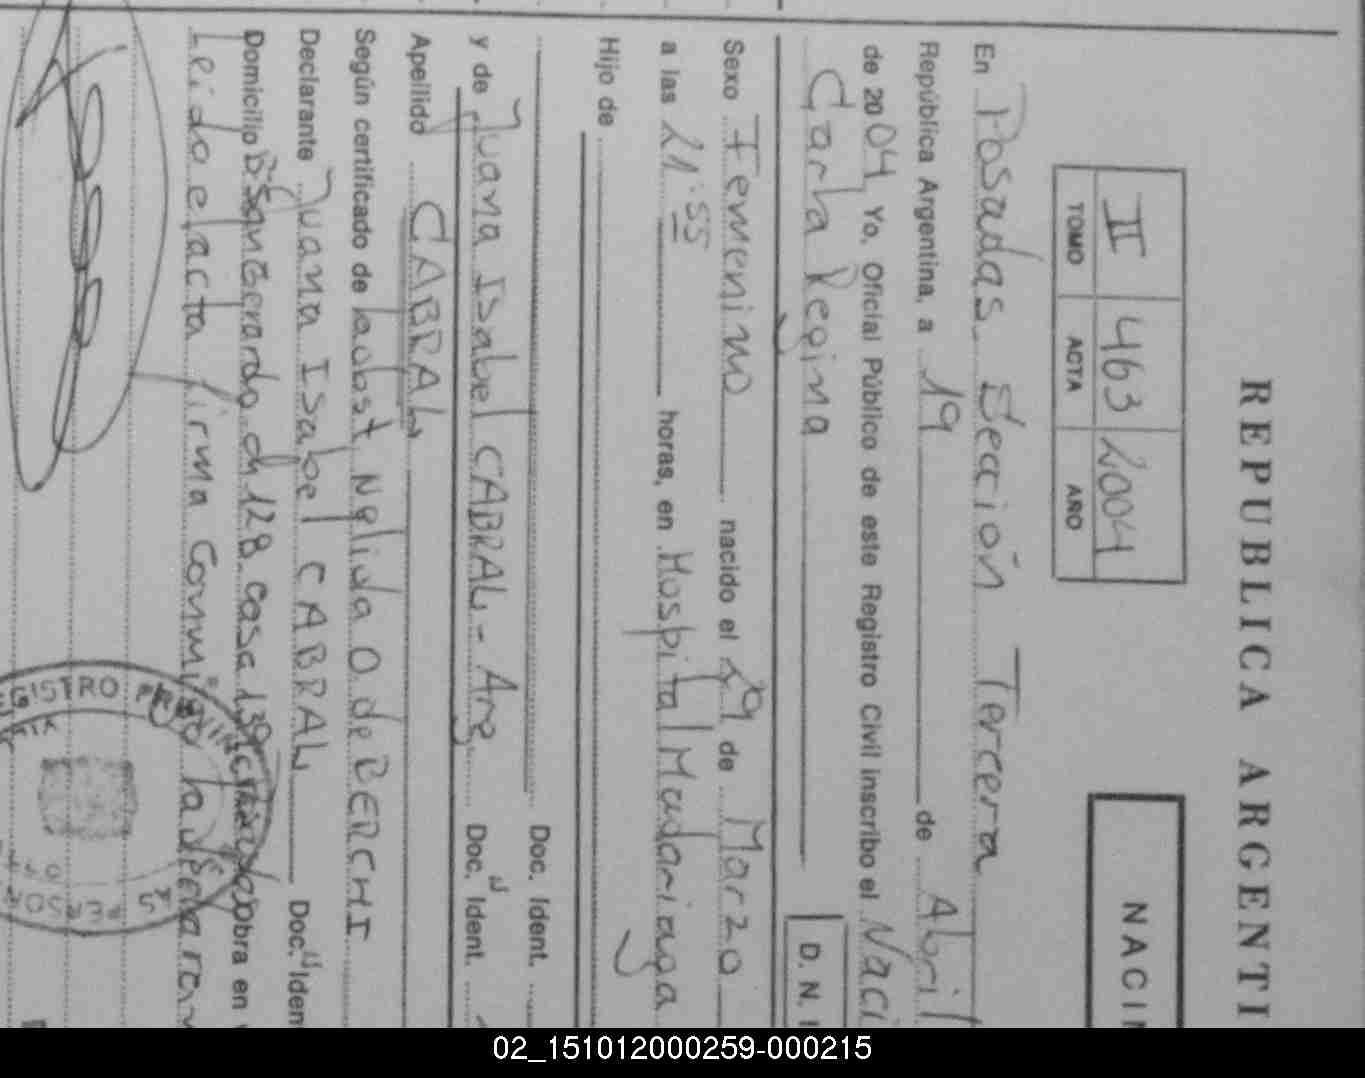 REPUBLICA ARGENTI
NACI
II 463 2004
TOMO ACTA AÑO
En Posadas Sección Tercera
República Argentina, a 19 de Abril
de 2004, Yo, Oficial Público de este Registro Civil inscribo el Naci
Carla Regina D. N. I
Sexo Femenino nacido el 29 de Marzo
a las 21:55 horas, en Hospital Madariaga
Hijo de
Doc. Ident.
y de Juana Isabel CABRAL - Arg Doc. Ident.
Apellido CABRAL
Según certificado de la obst Nelida O de BERCHI
Declarante Juana Isabel CABRAL Doc. Iden
Domicilio Bº San Gerardo ch 128 casa 139 obra en
Leido el acta firma conmigo la
GISTRO
02_151012000259-000215